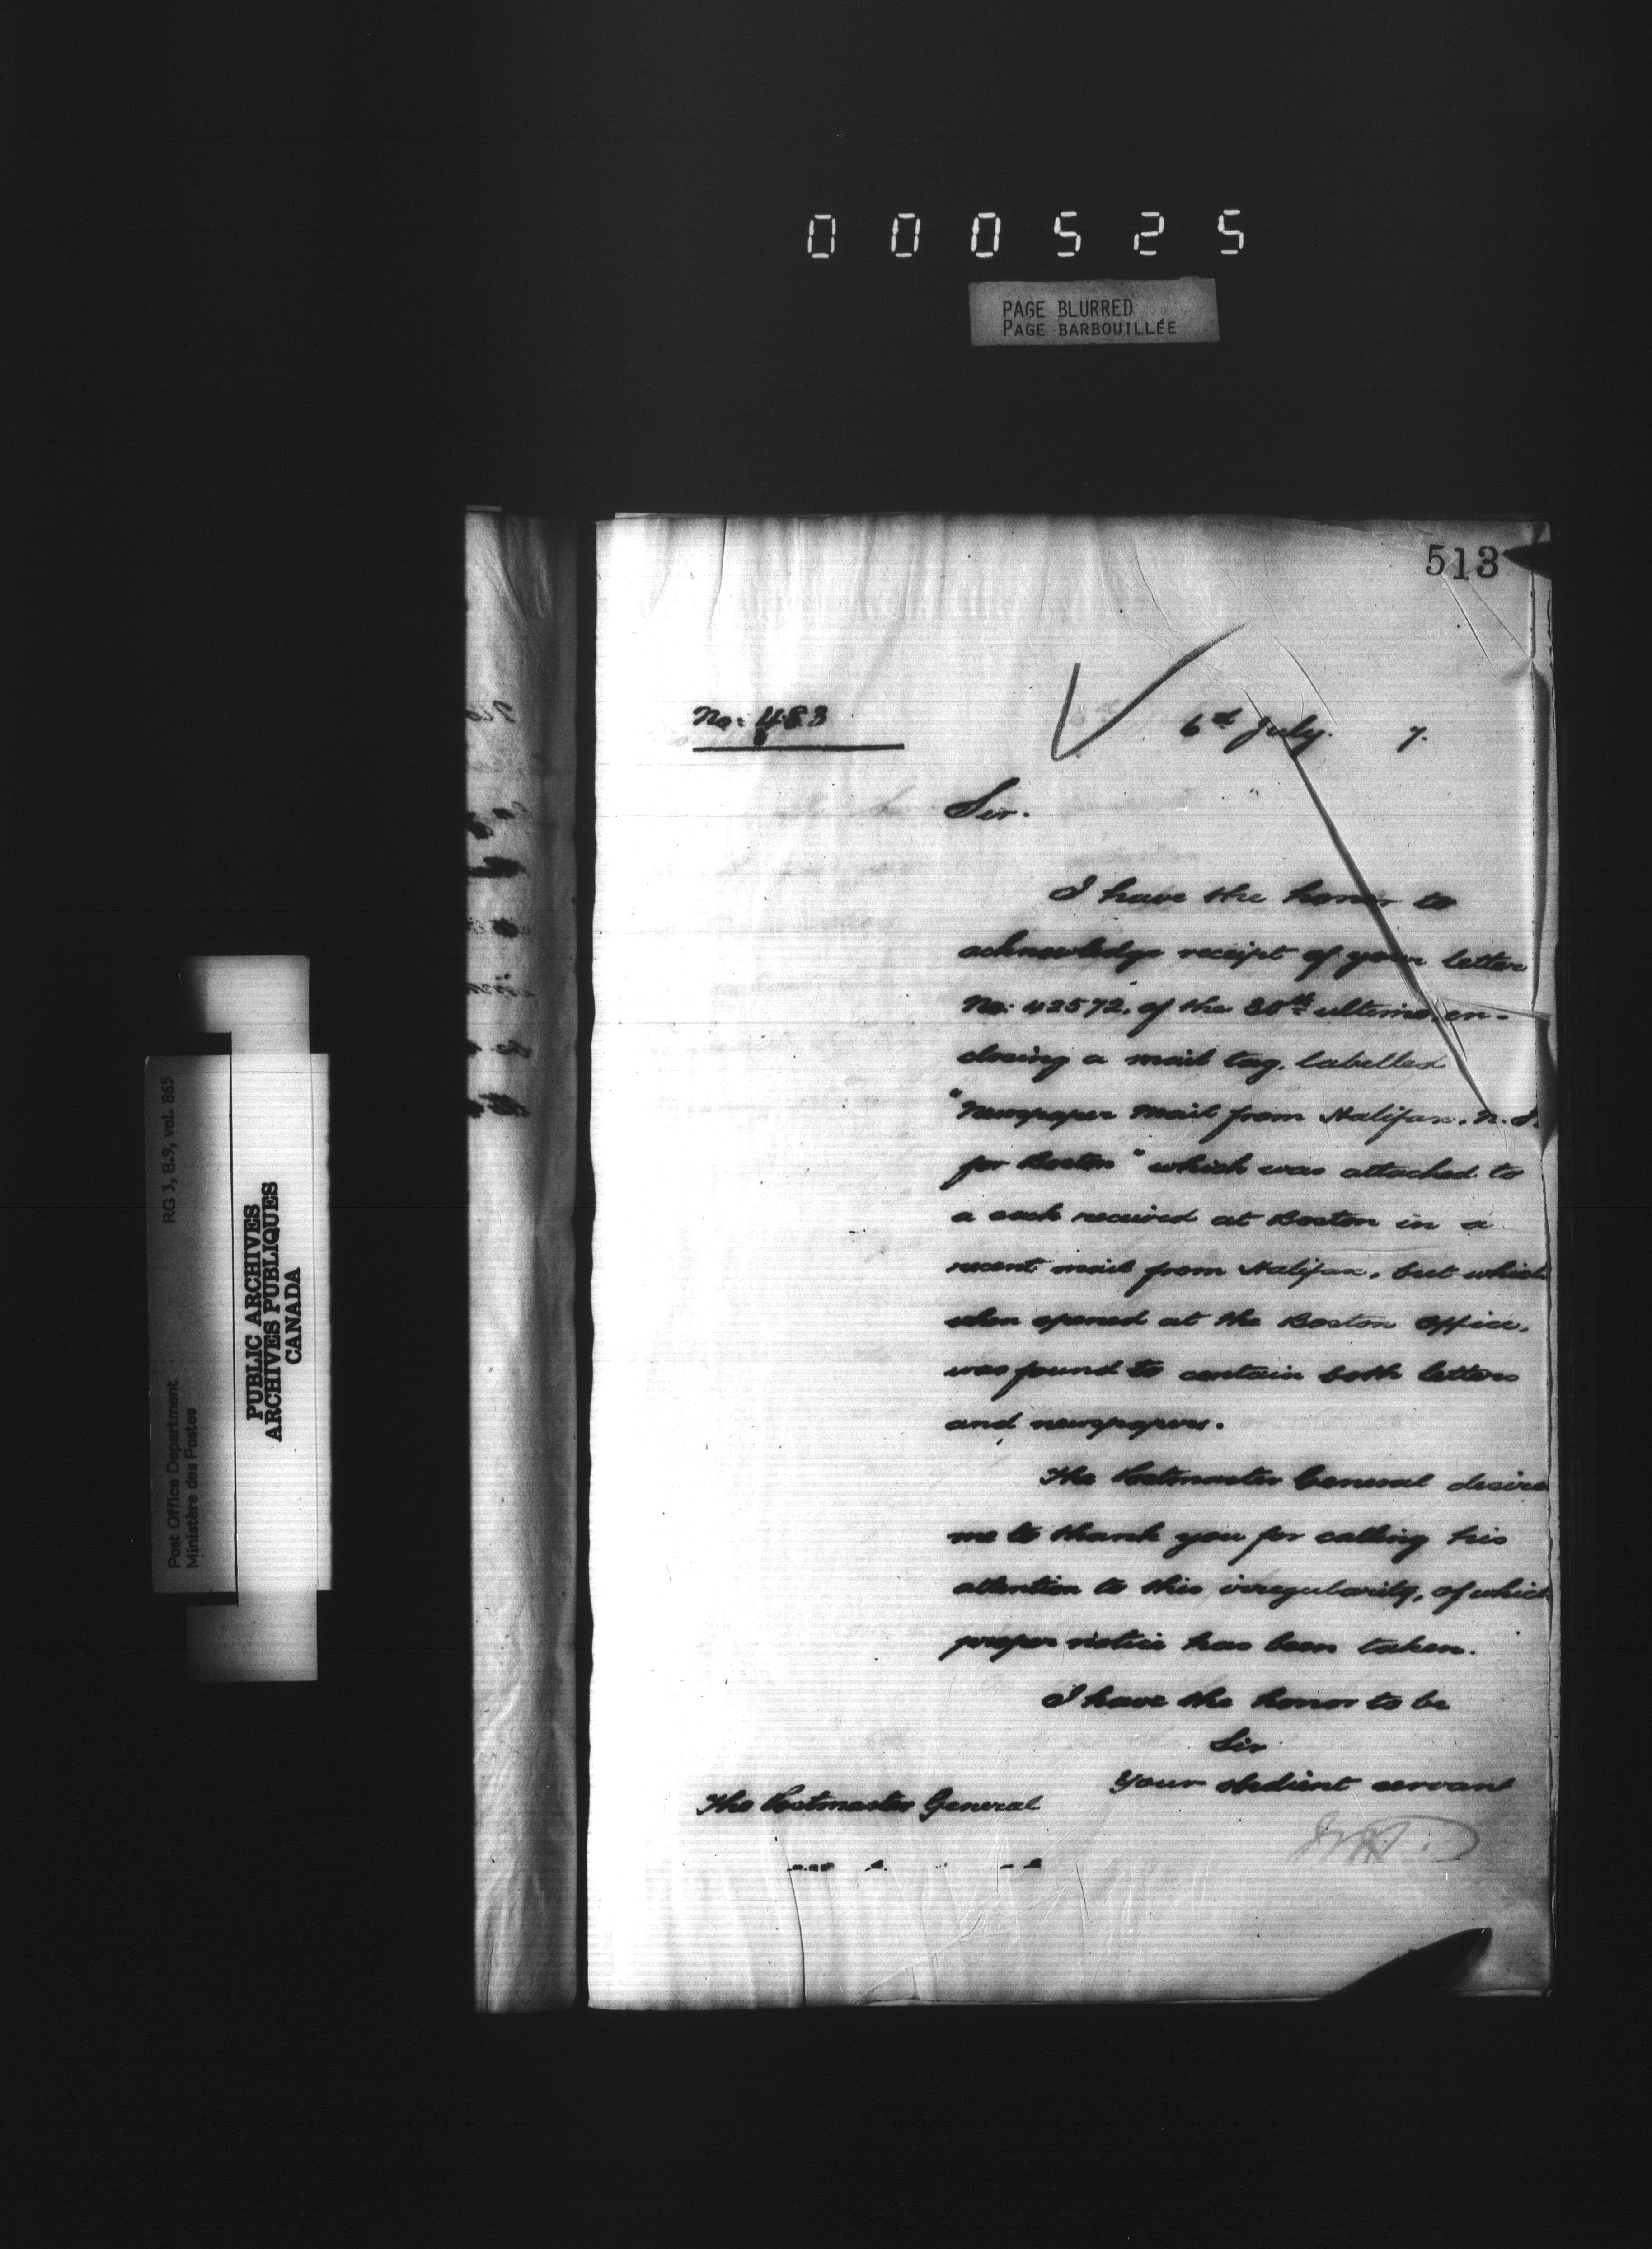 0 0 0 5 2 5
PAGE BLURRED
PAGE BARBOUILLÉE
513
No: 483
6th July. 7.
Sir.
I have the honor to
acknowledge receipt of your letter
No: 42572, of the 30th ultimo, en-
closing a mail tag, labelled
"Newspaper Mail from Halifax, N. S.
for Boston" which was attached to
a sack received at Boston in a
recent mail from Halifax, but which
when opened at the Boston Office,
was found to contain both letters
and newspapers.
The Postmaster General desires
me to thank you for calling his
attention to this irregularity, of which
proper notice has been taken.
I have the honor to be
Sir
Your obedient servant
The Postmaster General
RG 3, B.9, vol. 865
Post Office Department
Ministère des Postes
PUBLIC ARCHIVES
ARCHIVES PUBLIQUES
CANADA